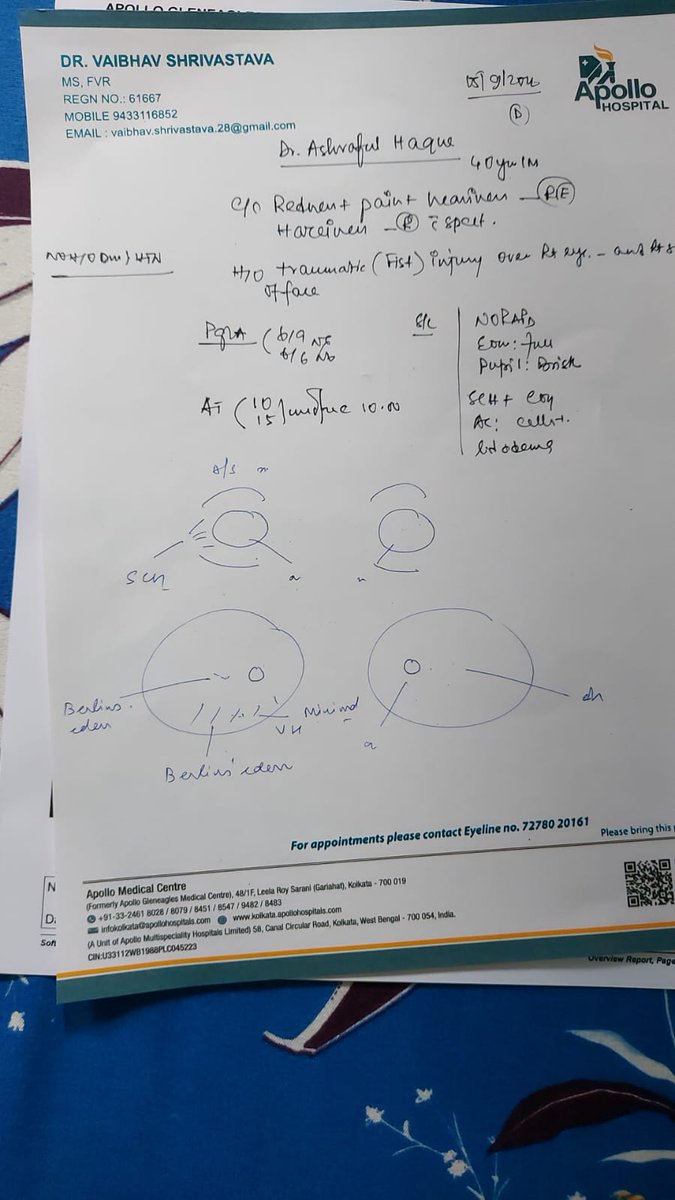 DR. VAIBHAV SHRIVASTAVA
MS, FVR
REGN NO.: 61667
MOBILE 9433116852
EMAIL : vaibhav.shrivastava.28@gmail.com
Apollo
HOSPITAL
Dr. Ashraful Haque
40yrs/M
c/o Redness + pain + heaviness - (R/E)
Haziness - (R) c̄ spect.
NO H/O DM / HTN
H/O traumatic (Fist) injury over Rt eye. - and Rt
of face
PgVA ( 6/9 N6
6/6 N6
S/L
NO RAPD
EOM: full
Pupil: Brisk
AT ( 10
15 ) 10.00
SCH +
AC: cells+.
lid odema
A/S
SCH
Berlins
edem
Minimal
VH
Berlins' edem
For appointments please contact Eyeline no. 72780 20161
Please bring this
Apollo Medical Centre
(Formerly Apollo Gleneagles Medical Centre), 48/1F, Leela Roy Sarani (Gariahat), Kolkata - 700 019
+91-33-2461 8028 / 8079 / 8451 / 8547 / 9482 / 8483
infokolkata@apollohospitals.com www.kolkata.apollohospitals.com
(A Unit of Apollo Multispeciality Hospitals Limited) 58, Canal Circular Road, Kolkata, West Bengal - 700 054, India.
CIN:U33112WB1988PLC045223
Overview Report, Page